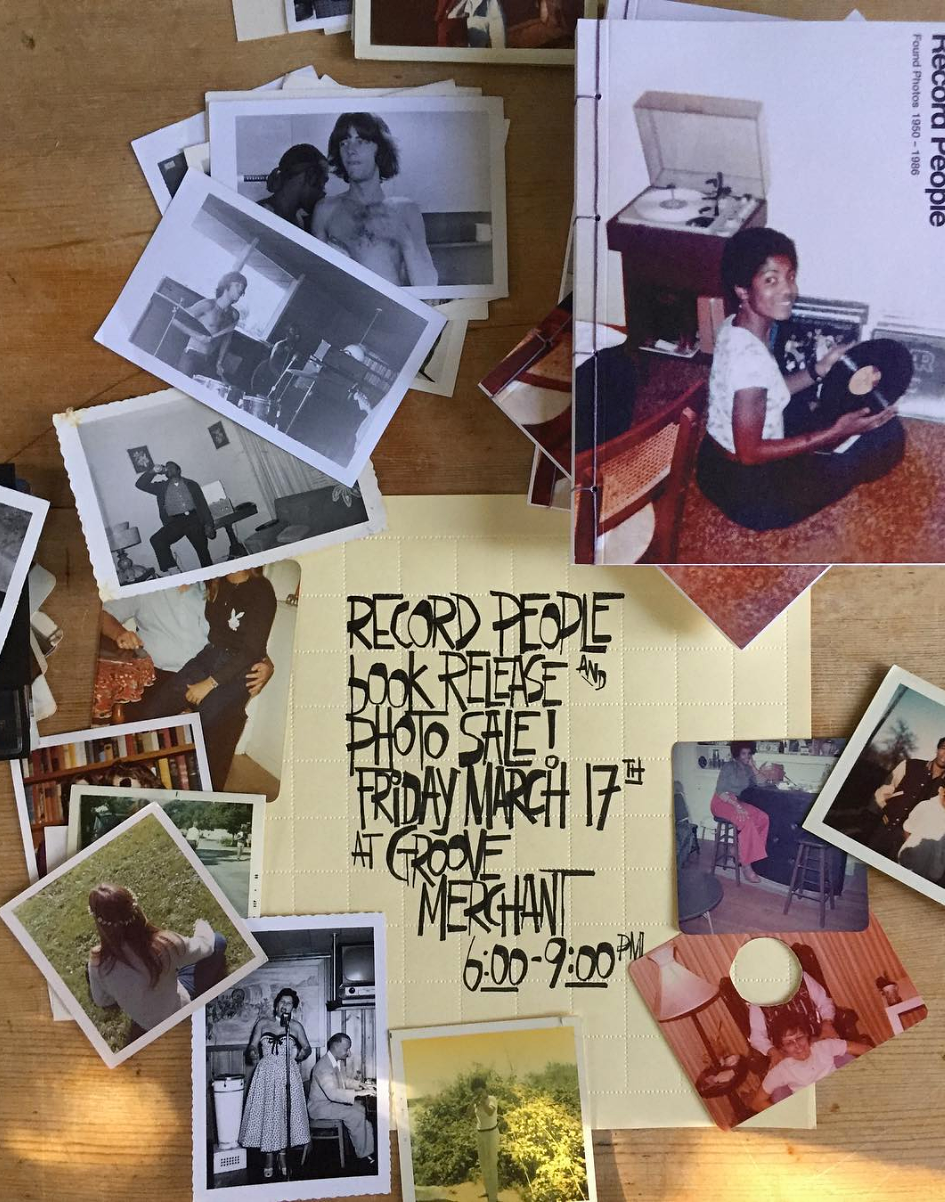 Record People
Found Photos 1950 – 1986
RECORD PEOPLE
bOOK RELEASE AND
PHOTO SALE!
FRiDAY MARCH 17TH
AT GROOVE
MERCHANT
6:00-9:00PM